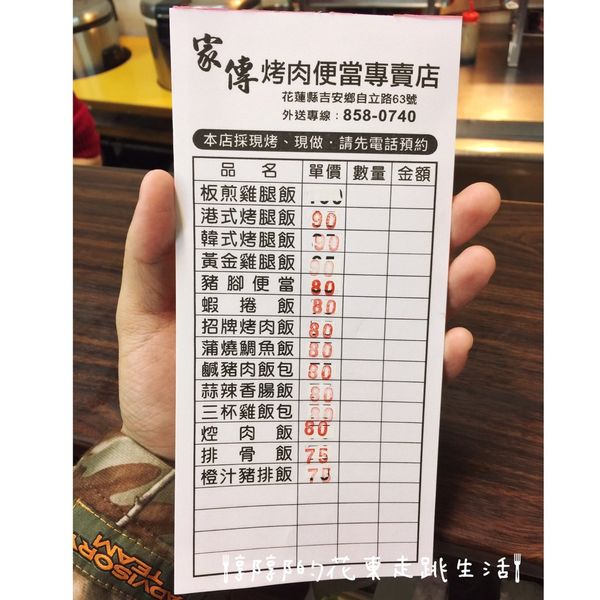 家傳 烤肉便當專賣店
花蓮縣吉安鄉自立路63號
外送專線：858-0740
本店採現烤、現做．請先電話預約
品名 單價 數量 金額
板煎雞腿飯
港式烤腿飯 90
韓式烤腿飯
黃金雞腿飯
豬腳便當 80
蝦捲飯 80
招牌烤肉飯 80
蒲燒鯛魚飯 80
鹹豬肉飯包 80
蒜辣香腸飯 80
三杯雞飯包 80
焢肉飯 80
排骨飯 75
橙汁豬排飯 75
ADVISORY
TEAM
惇惇的花東走跳生活